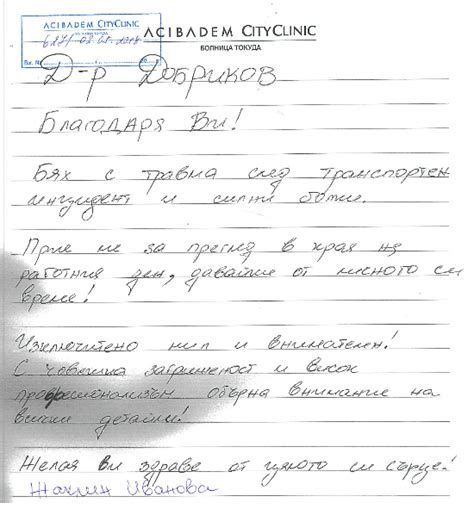 ACIBADEM CITYCLINIC
ACIBADEM CITYCLINIC
БОЛНИЦА ТОКУДА
Д-р Добриков
Благодаря Ви!
Бях с травма след транспортен
инцидент и силни болки.
Прие ме за преглед в края на
работния ден, давайки от личното си
време!
Изключително мил и внимателен!
С човешка загриженост и висок
професионализъм обърна внимание на
всички детайли!
Желая Ви здраве от цялото си сърце!
Жаклин Иванова